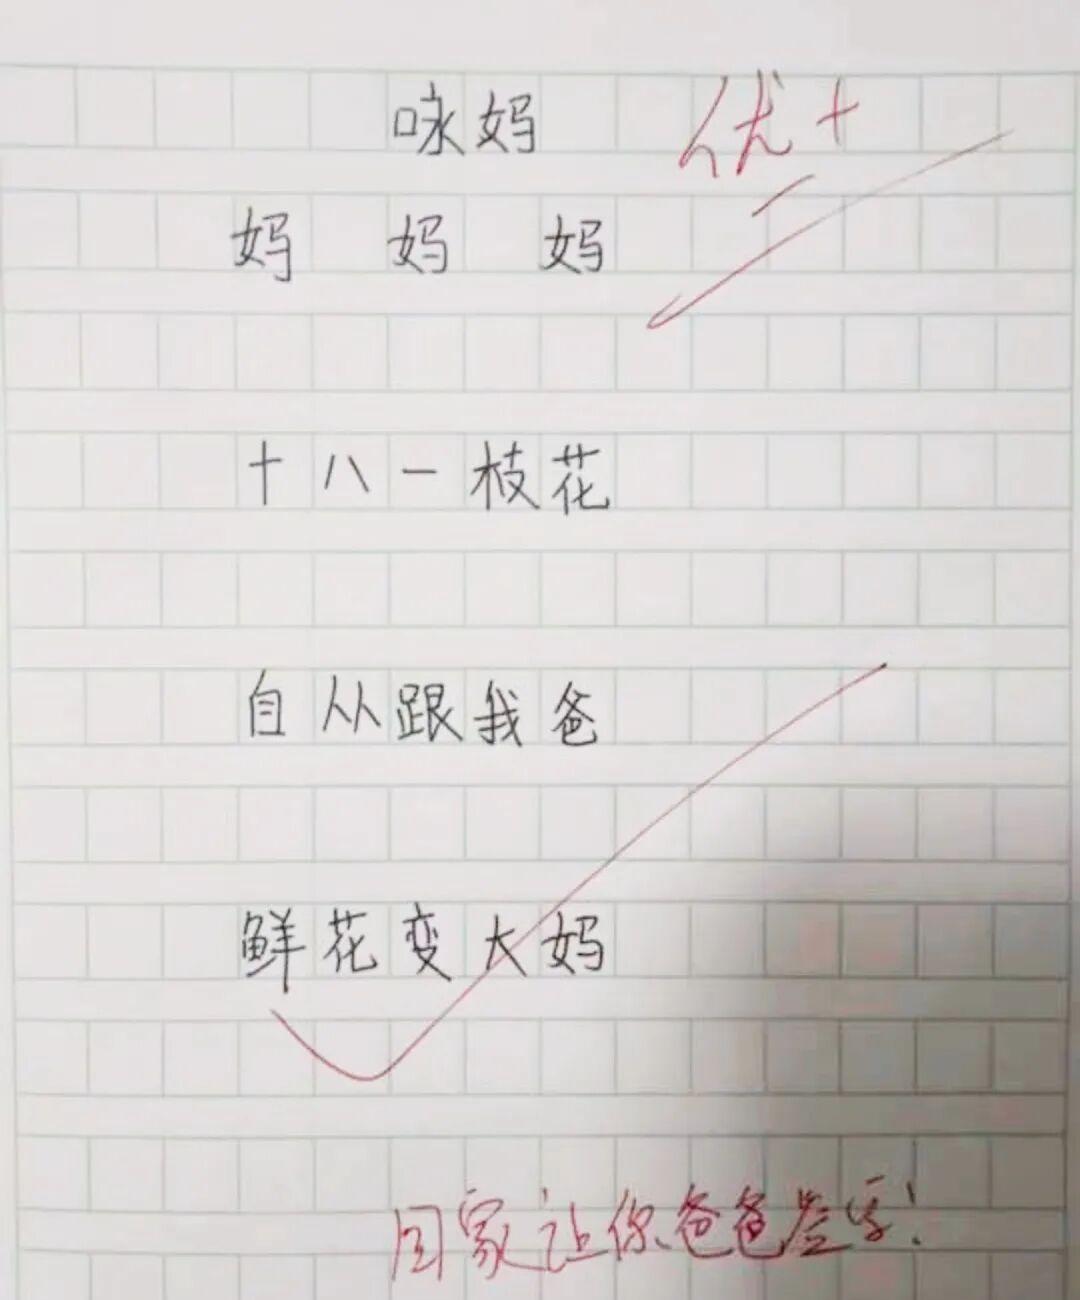 咏妈 优+
妈 妈 妈
十八一枝花
自从跟我爸
鲜花变大妈
回家让你爸爸签字!